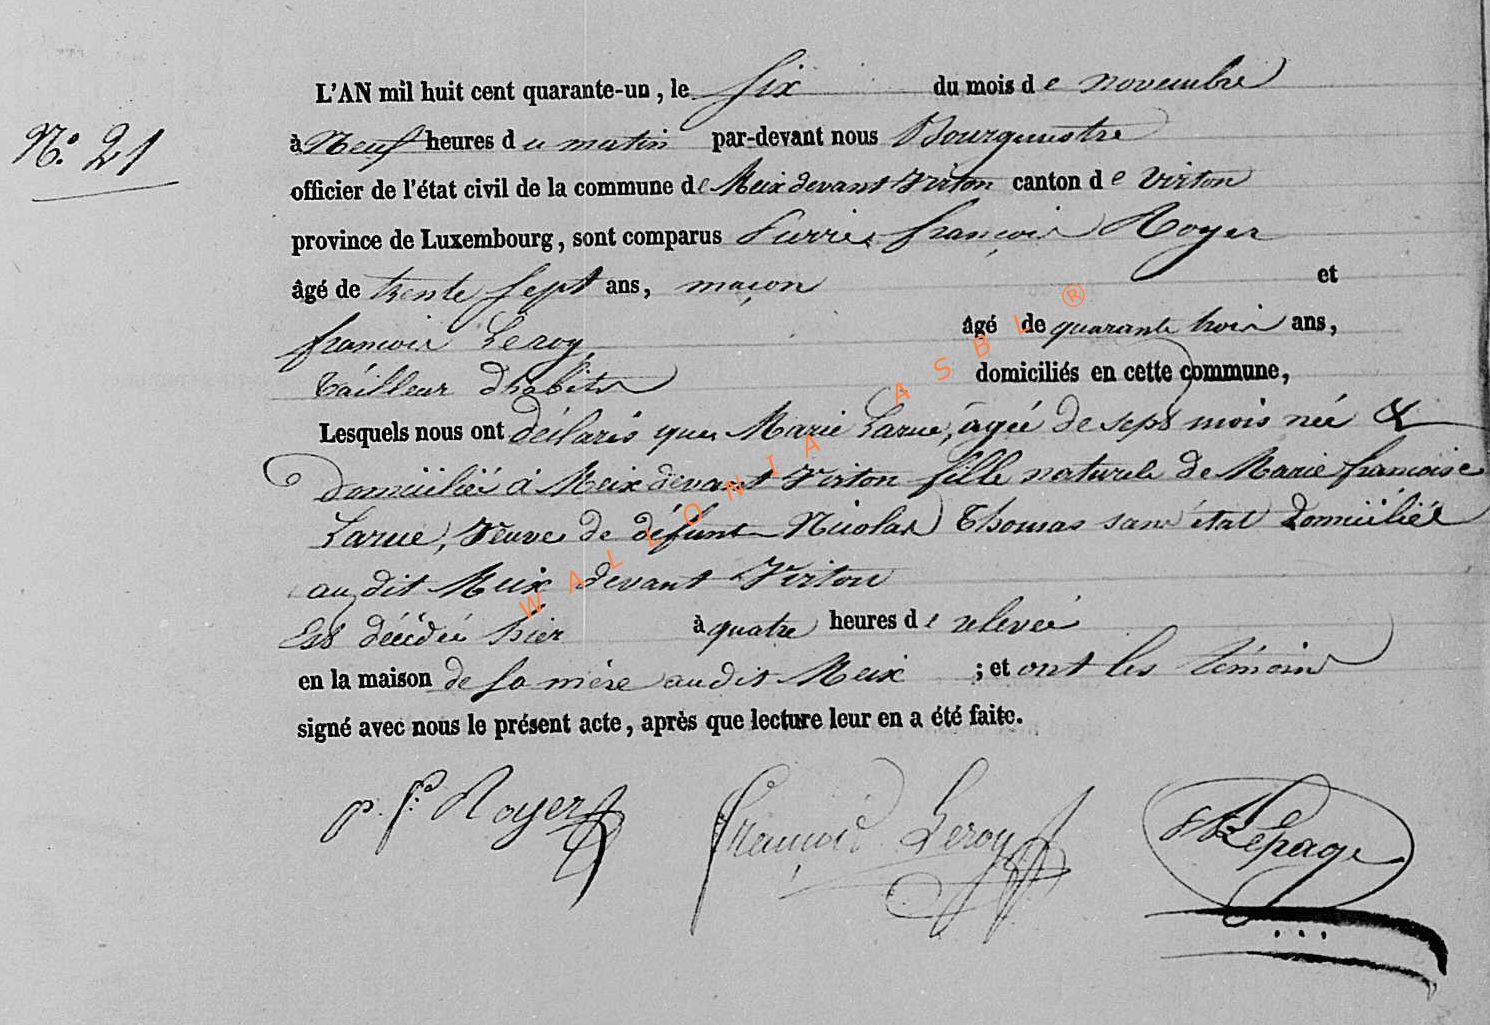 L'AN mil huit cent quarante-un, le six du mois de novembre
N.° 21
à Neuf heures du matin par-devant nous Bourguestre
officier de l'état civil de la commune de Meix devant Virton canton de Virton
province de Luxembourg, sont comparus Pierre françois Royer
âgé de trente sept ans, maçon et
françois Leroy âgé de quarante trois ans,
tailleur d'habits domiciliés en cette commune,
Lesquels nous ont déclarés que Marie Larue, agée de sept mois née &
Domiciliée à Meix devant Virton fille naturele de Marie francoise
Larue, Veuve de défunt Nicolas Thomas sans état Domiciliée
au dit Meix devant Virton
Est décédée hier à quatre heures de relevée
en la maison de sa mère au dit Meix ; et ont les témoins
signé avec nous le présent acte, après que lecture leur en a été faite.
p. f. Royer françois Leroy Lepage
WALLONIA ASBL ®